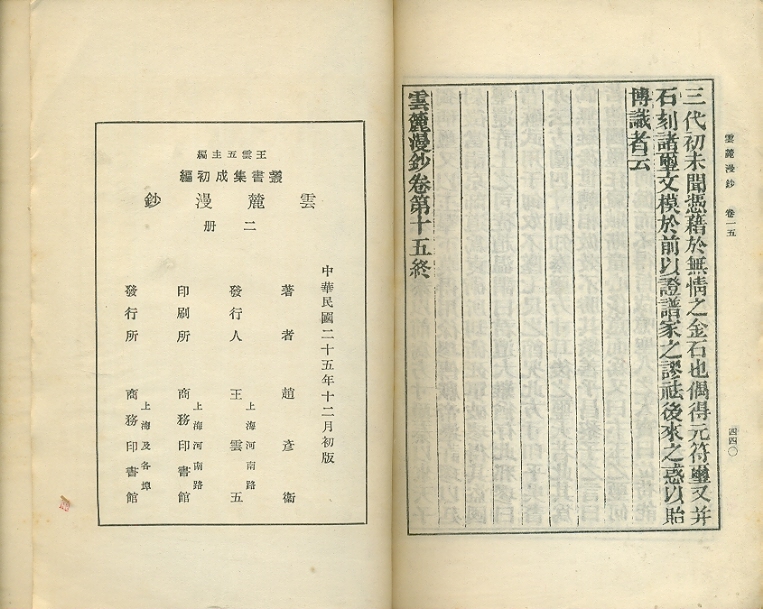 雲麓漫鈔 卷一五
四四〇
三代初未聞憑藉於無情之金石也偶得元符璽又并
石刻諸璽文模於前以證譜家之謬祛後來之惑以貽
博識者云
雲麓漫鈔卷第十五終
王雲五主編
叢書集成初編
雲麓漫鈔
二册
中華民國二十五年十二月初版
著者 趙彥衞
發行人 王雲五
上海河南路
印刷所 商務印書館
上海河南路
發行所 商務印書館
上海及各埠